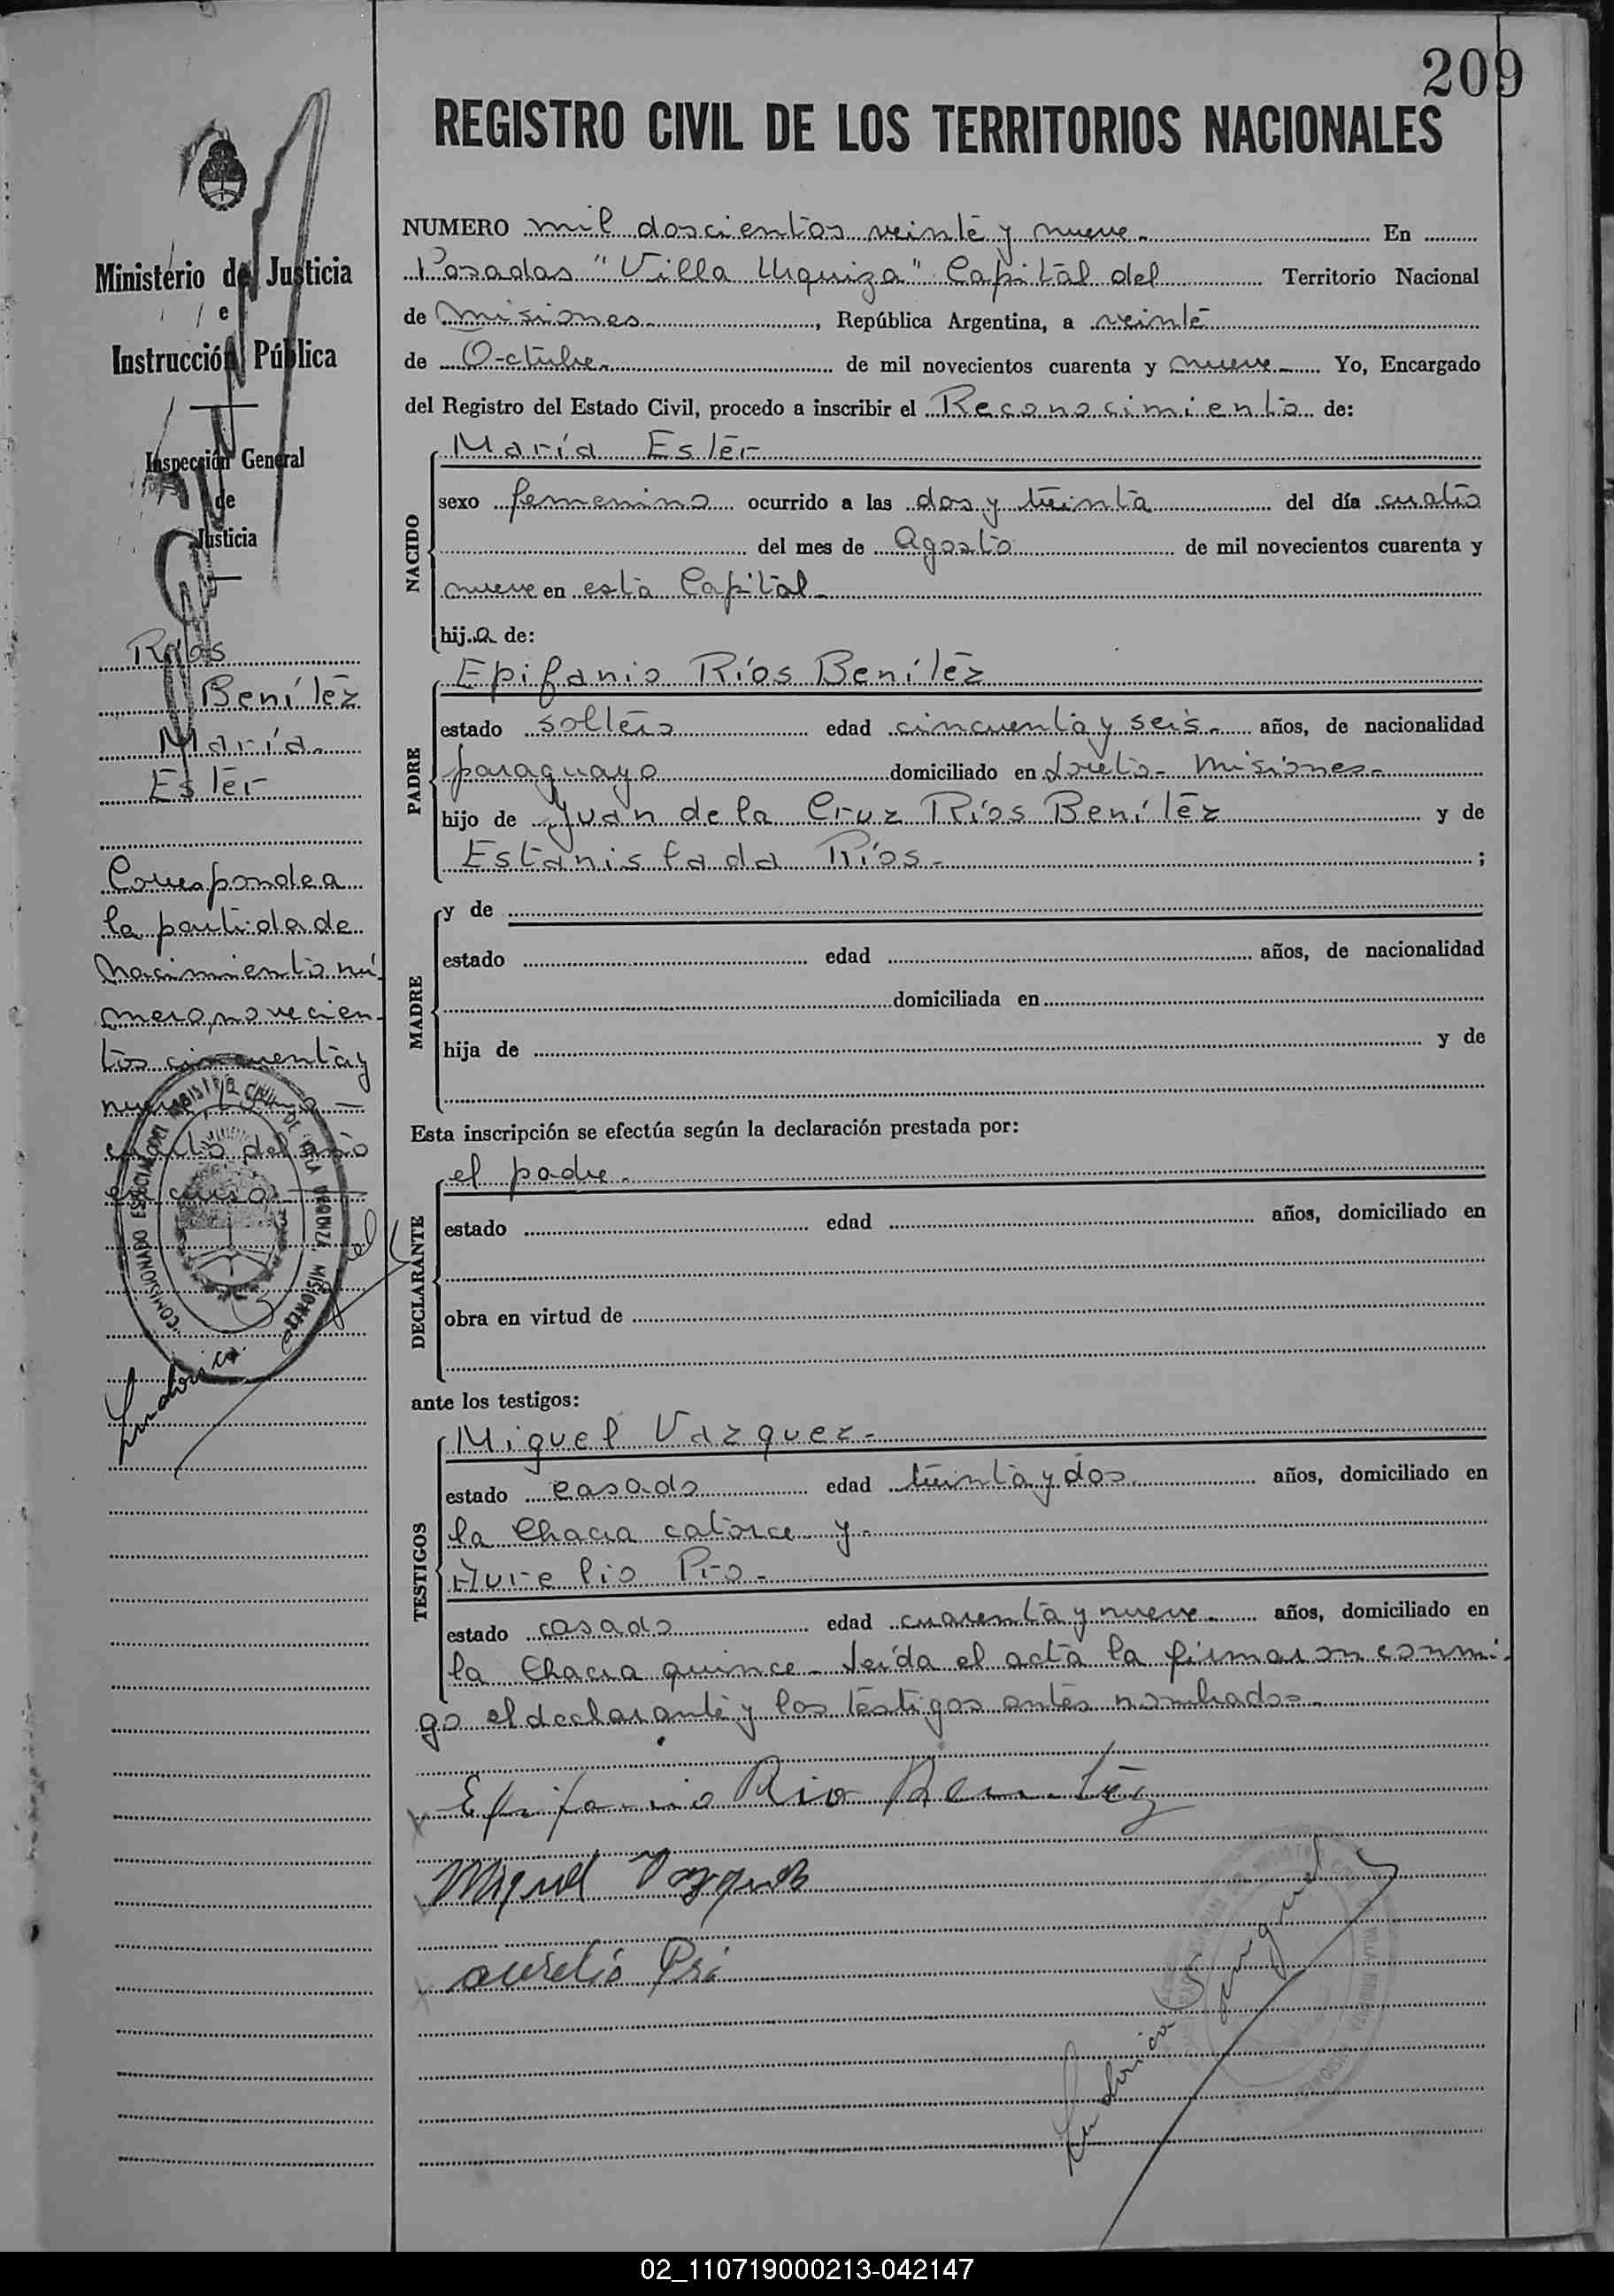 209
REGISTRO CIVIL DE LOS TERRITORIOS NACIONALES
Ministerio de Justicia
e
Instrucción Pública
Inspección General
de
Justicia
Ríos
Benítez
María
Ester
Corresponde a
la partida de
Nacimiento nú-
mero novecien-
tos cincuenta y
nueve,
del año
en curso
COMISIONADO ESPECIAL DEL REGISTRO CIVIL DE VILLA URQUIZA MISIONES
NUMERO mil doscientos veinte y nueve. En
Posadas "Villa Urquiza" Capital del Territorio Nacional
de Misiones, República Argentina, a veinte
de Octubre de mil novecientos cuarenta y nueve Yo, Encargado
del Registro del Estado Civil, procedo a inscribir el Reconocimiento de:
NACIDO
María Ester
sexo femenino ocurrido a las dos y treinta del día cuatro
del mes de Agosto de mil novecientos cuarenta y
nueve en esta Capital
hija de:
PADRE
Epifanio Ríos Benítez
estado soltero edad cincuenta y seis años, de nacionalidad
paraguayo domiciliado en Loreto - Misiones
hijo de Juan de la Cruz Ríos Benítez y de
Estanislada Ríos. ;
MADRE
y de
estado edad años, de nacionalidad
domiciliada en
hija de y de
Esta inscripción se efectúa según la declaración prestada por:
DECLARANTE
el padre.
estado edad años, domiciliado en
obra en virtud de
ante los testigos:
TESTIGOS
Miguel Vazquez.
estado casado edad treinta y dos años, domiciliado en
la Chacra catorce y
Aurelio Pro.
estado casado edad cuarenta y nueve años, domiciliado en
la Chacra quince. Leída el acta la firmaron conmi-
go el declarante y los testigos antes nombrados.
Epifanio Rio Benitez
Miguel Vazquez
aurelio
02_110719000213-042147